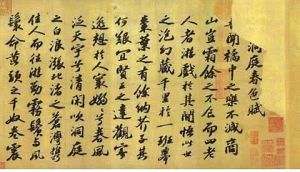 洞庭春色賦
吾聞橘中之樂不減商
山豈霜餘之不食而四老
人者游戲於其間悟此世
之泡幻藏千里於一班舉
棗葉之有餘納芥子其
何艱宜賢王之達觀寄
逸想於人寰嫋嫋兮春風
泛天宇兮清閑吹洞庭
之白浪漲北渚之蒼灣攜
佳人而往游勒霧鬢與風
鬟命黃頭之千奴卷震